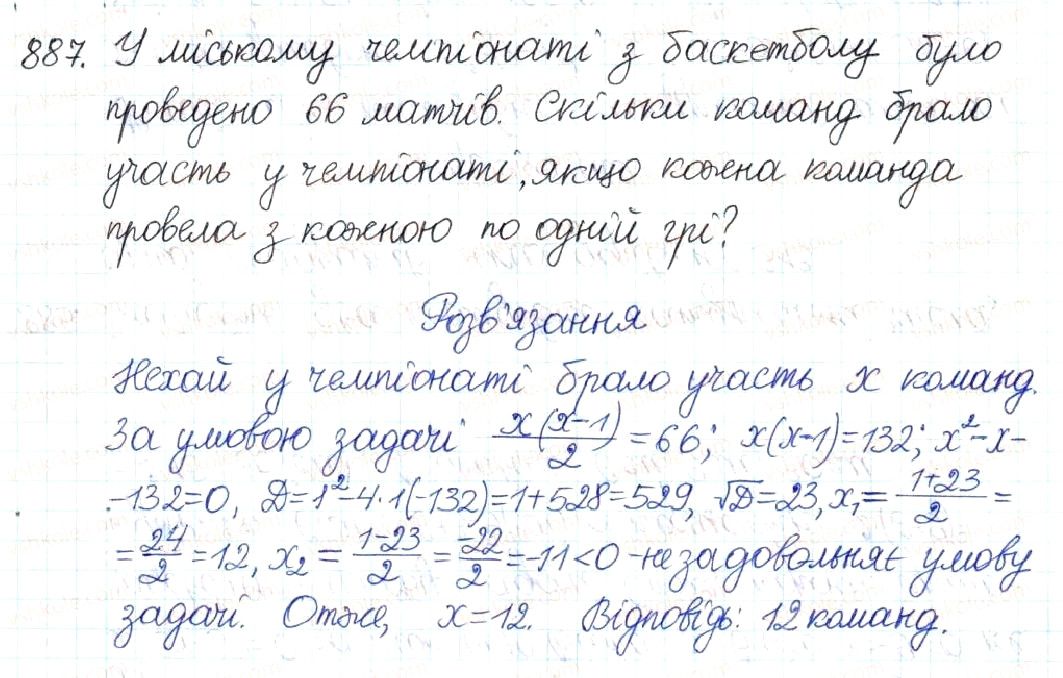 887. У міському чемпіонаті з баскетболу було
проведено 66 матчів. Скільки команд брало
участь у чемпіонаті, якщо кожна команда
провела з кожною по одній грі?
Розв'язання
Нехай у чемпіонаті брало участь x команд.
За умовою задачі x(x-1)/2 = 66; x(x-1)=132; x²-x-
-132=0, D=1²-4·1(-132)=1+528=529, √D=23, x₁= (1+23)/2 =
= 24/2 =12, x₂= (1-23)/2 = -22/2 =-11<0 -не задовольняє умову
задачі. Отже, x=12. Відповідь: 12 команд.